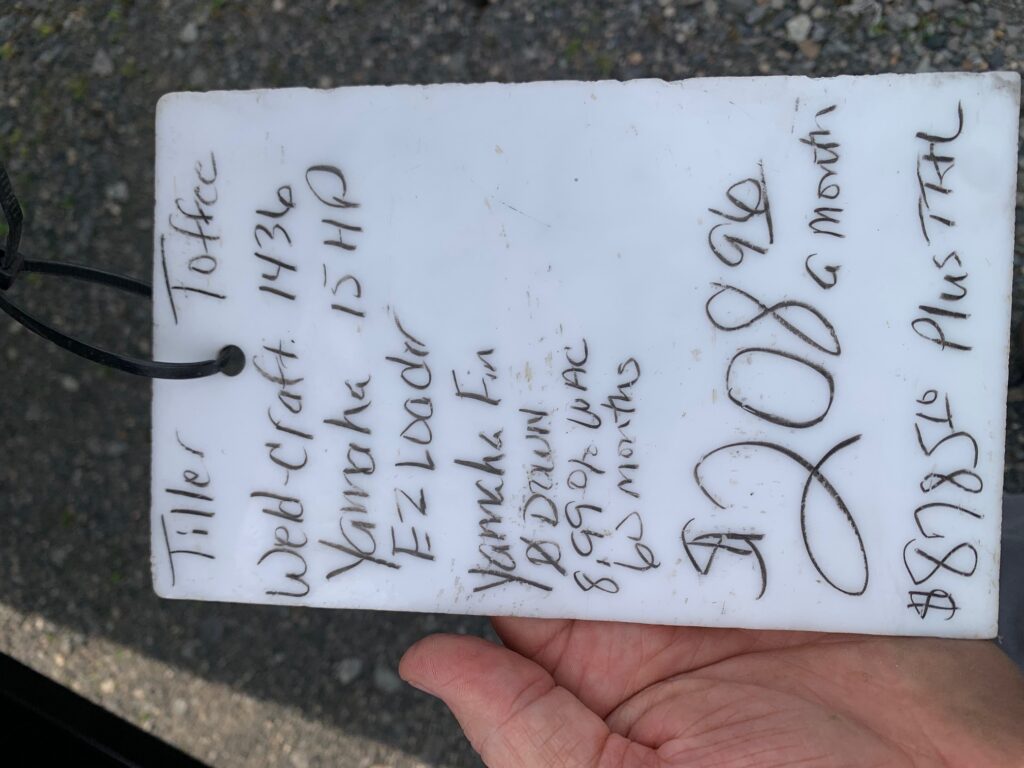 Tiller Toffee
Weld-Craft. 1436
Yamaha 15 HP
EZ LOADER
Yamaha Fin
Ø DOWN
8.99% WAC
60 months
$208 96
a month
$8785 Plus TT+L